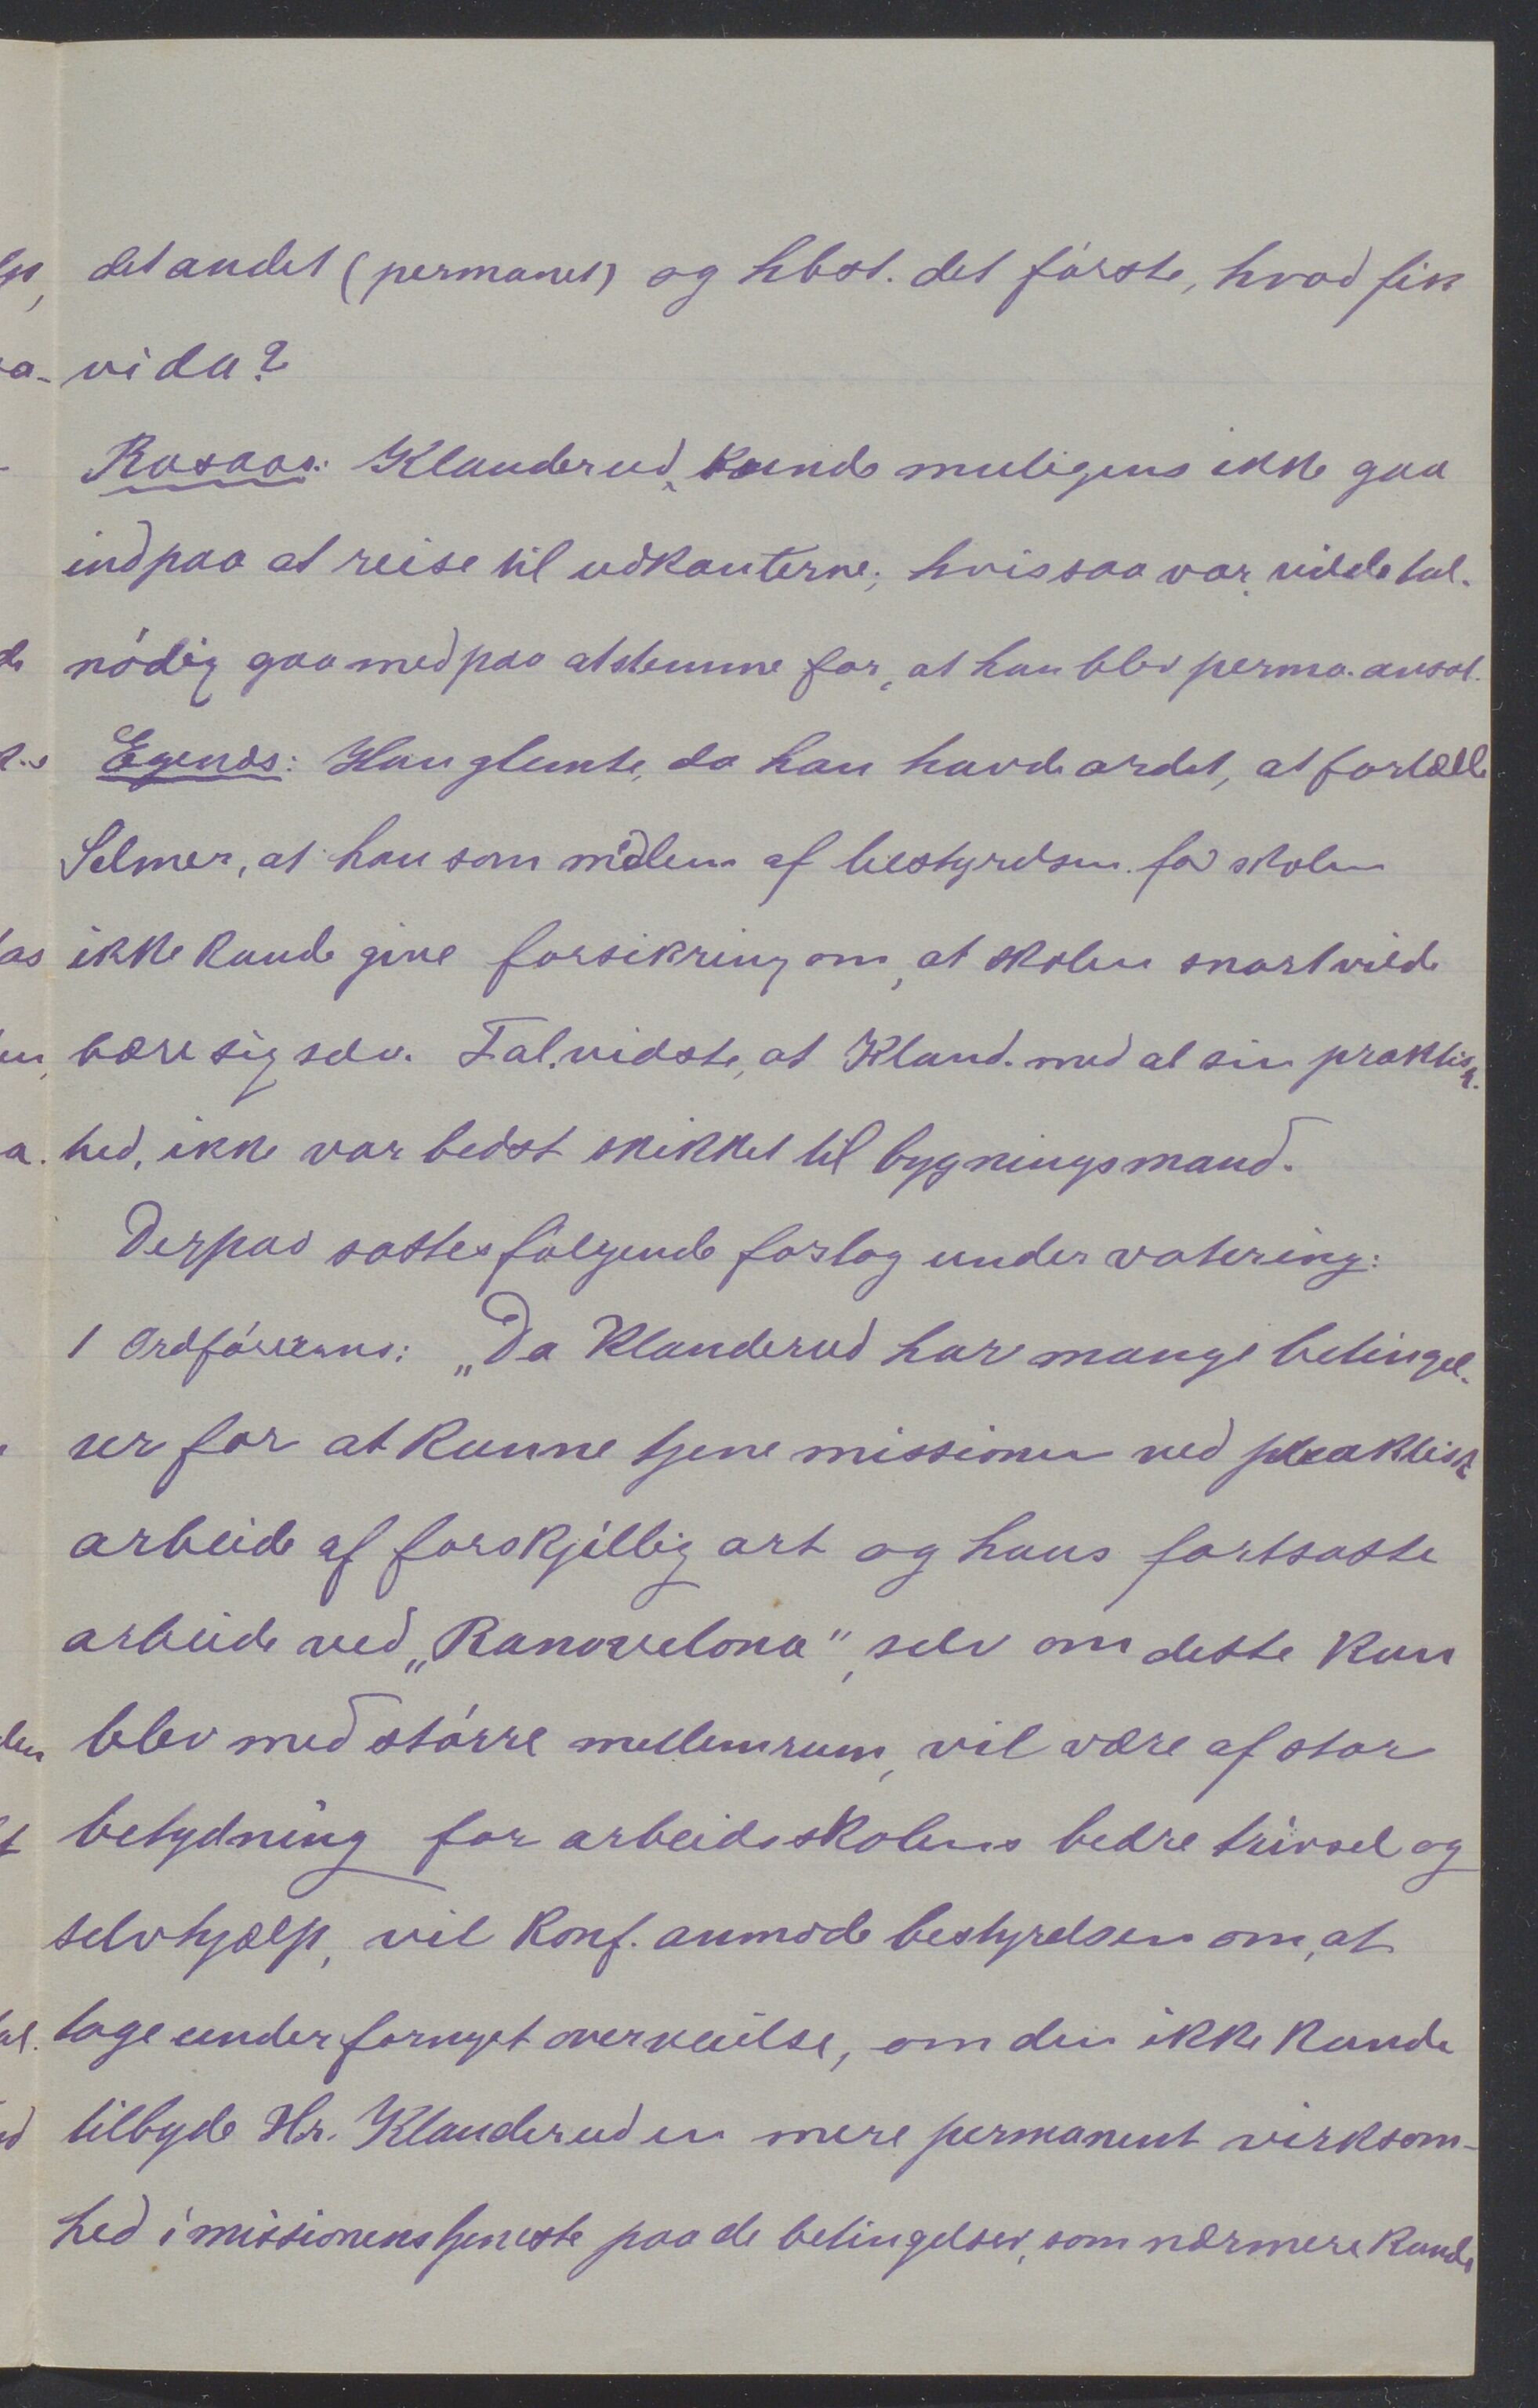 det andet (permanet) og hbst. det första, hvad fik
vi da?
Rosaas: Klanderud kunde muligens ikke gaa
ind paa at reise til udkanterne; hvis saa var, vilde tal.
nödig gaa med paa at stemme for, at han blev perma. ansat.
Egenæs: Han glemte, da han havde ordet, at fortælle
Selmer, at han som mdlem af bestyrelsen for skolen
ikke kunde give forsikring om, at skolen snart vilde
bære sig selv. Tal. vidste, at Kland. med al sin praktisk.
hed, ikke var bedst skikket til bygningsmand.
Derpaa sattes følgende forslag under votering:
1 Ordförerens: „Da Klanderud har mange betingel.
ser for at kunne tjene missionen ved praktisk
arbeide af forskjellig art og hans fortsatte
arbeide ved „Ranovelona", selv om dette kun
blev med större mellemrum, vil være af stor
betydning for arbeidsskolens bedre trivsel og
selvhjælp, vil konf. anmode bestyrelsen om, at
tage under fornyet overveielse, om den ikke kunde
tilbyde Hr. Klanderud en mere permanent virksom-
hed i missionens tjeneste paa de betingelser, som nærmere kunde